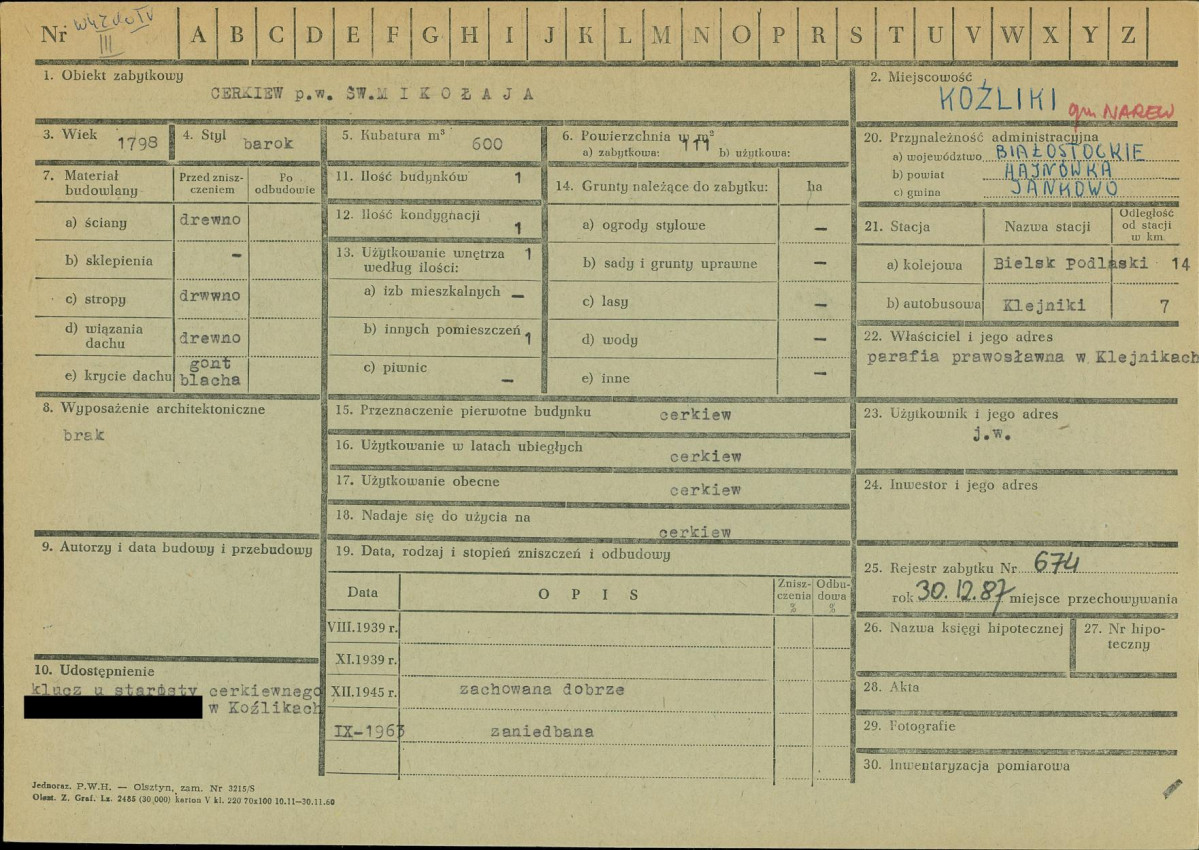 Nr III
A B C D E F G H I J K L M N O P R S T U V W X Y Z
1. Obiekt zabytkowy
CERKIEW p.w. ŚW.M I K O Ł A J A
2. Miejscowość
KOŹLIKI
gm NAREW
3. Wiek 1798
4. Styl barok
5. Kubatura m³ 600
6. Powierzchnia w m²
a) zabytkowa: 111 b) użytkowa:
20. Przynależność administracyjna
a) województwo BIAŁOSTOCKIE
b) powiat HAJNÓWKA
c) gmina JANKOWO
7. Materiał budowlany
Przed zniszczeniem
Po odbudowie
a) ściany drewno
b) sklepienia -
c) stropy drwwno
d) wiązania dachu drewno
e) krycie dachu gont blacha
11. Ilość budynków 1
12. Ilość kondygnacji 1
13. Użytkowanie wnętrza według ilości: 1
a) izb mieszkalnych —
b) innych pomieszczeń 1
c) piwnic —
14. Grunty należące do zabytku: ha
a) ogrody stylowe —
b) sady i grunty uprawne —
c) lasy —
d) wody —
e) inne —
21. Stacja
Nazwa stacji
Odległość od stacji w km.
a) kolejowa Bielsk Podlaski 14
b) autobusowa Klejniki 7
22. Właściciel i jego adres
parafia prawosławna w Klejnikach
8. Wyposażenie architektoniczne
brak
15. Przeznaczenie pierwotne budynku cerkiew
16. Użytkowanie w latach ubiegłych cerkiew
17. Użytkowanie obecne cerkiew
18. Nadaje się do użycia na cerkiew
23. Użytkownik i jego adres
j.w.
24. Inwestor i jego adres
9. Autorzy i data budowy i przebudowy
19. Data, rodzaj i stopień zniszczeń i odbudowy
Data
O P I S
Zniszczenia %
Odbudowa %
VIII.1939 r.
XI.1939 r.
XII.1945 r. zachowana dobrze
IX-1963 zaniedbana
25. Rejestr zabytku Nr 674
rok 30.12.87 miejsce przechowywania
26. Nazwa księgi hipotecznej
27. Nr hipoteczny
10. Udostępnienie
klucz u starosty cerkiewnego
w Koźlikach
28. Akta
29. Fotografie
30. Inwentaryzacja pomiarowa
Jednoraz. P.W.H. — Olsztyn, zam. Nr 3215/S
Olszt. Z. Graf. Lz. 2485 (30 000) karton V kl. 220 70x100 10.11—30.11.60